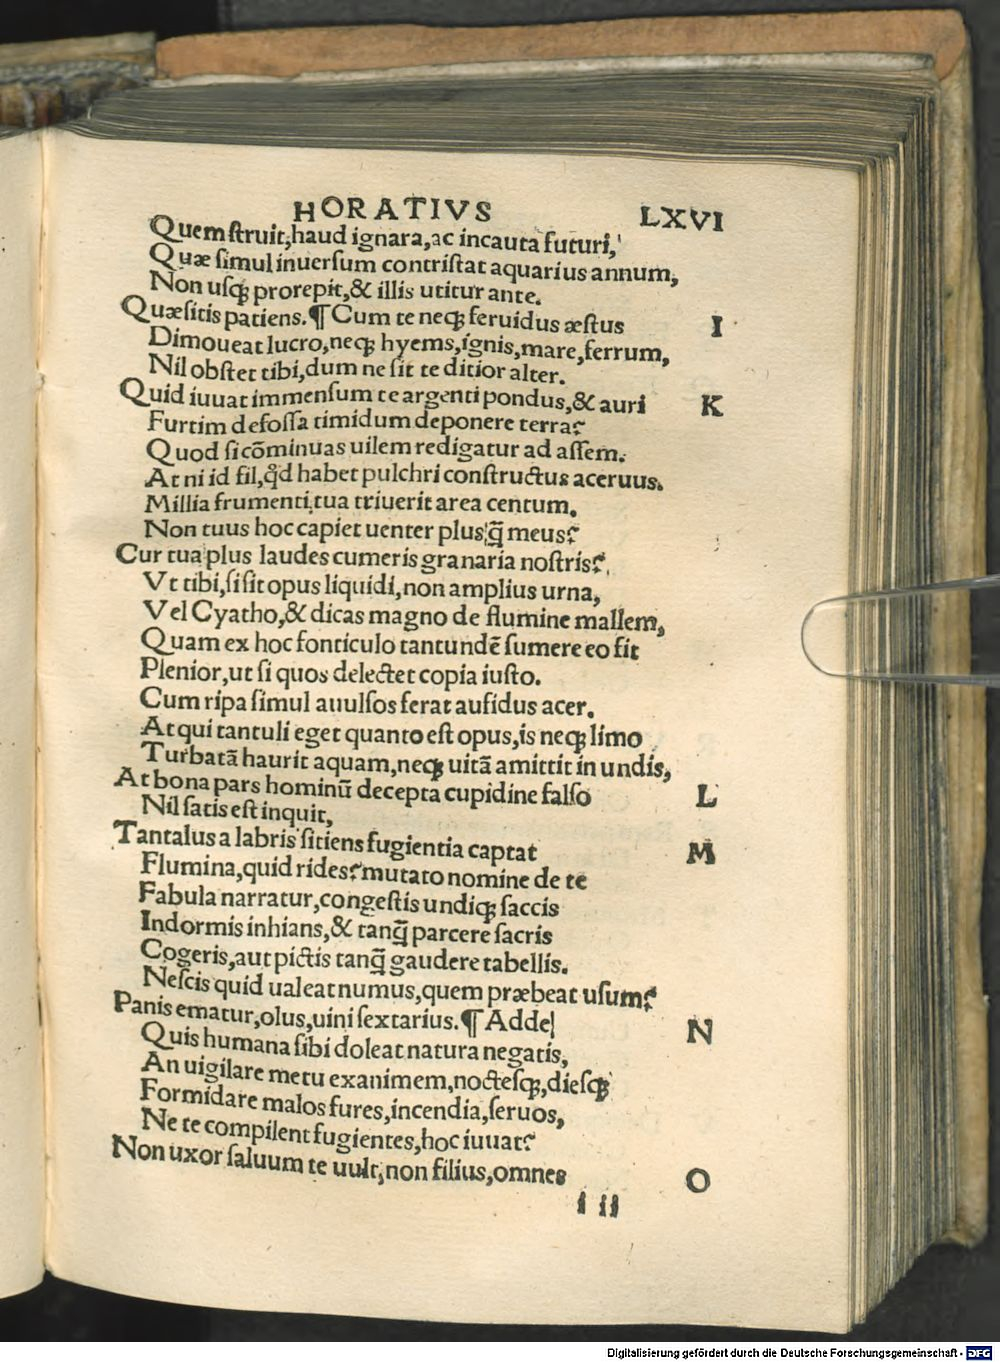 HORATIVS LXVI
Quem struit, haud ignara, ac incauta futuri,
Quæ simul inuersum contristat aquarius annum,
Non usq; prorepit, & illis utitur ante.
Quæsitis patiens. ¶ Cum te neq; feruidus æstus I
Dimoueat lucro, neq; hyems, ignis, mare, ferrum,
Nil obstet tibi, dum ne sit te ditior alter.
Quid iuuat immensum te argenti pondus, & auri K
Furtim defossa timidum deponere terra?
Quod si cōminuas uilem redigatur ad assem.
At ni id fil, qd habet pulchri constructus aceruus.
Millia frumenti, tua triuerit area centum.
Non tuus hoc capiet uenter plus, q̃ meus?
Cur tua plus laudes cumeris granaria nostris?
Vt tibi, si sit opus liquidi, non amplius urna,
Vel Cyatho, & dicas magno de flumine mallem,
Quam ex hoc fonticulo tantundē sumere eo fit
Plenior, ut si quos delectet copia iusto.
Cum ripa simul auulsos ferat aufidus acer.
At qui tantuli eget quanto est opus, is neq; limo
Turbatā haurit aquam, neq; uitā amittit in undis,
At bona pars hominū decepta cupidine falso L
Nil satis est inquit,
Tantalus a labris sitiens fugientia captat M
Flumina, quid rides? mutato nomine de te
Fabula narratur, congestis undiq; saccis
Indormis inhians, & tanq̃ parcere sacris
Cogeris, aut pictis tanq̃ gaudere tabellis.
Nescis quid ualeat numus, quem præbeat usum?
Panis ematur, olus, uini sextarius. ¶ Adde N
Quis humana sibi doleat natura negatis,
An uigilare metu exanimem, noctesq;, diesq;
Formidare malos fures, incendia, seruos,
Ne te compilent fugientes, hoc iuuat?
Non uxor saluum te uult, non filius, omnes O
i ii
Digitalisierung gefördert durch die Deutsche Forschungsgemeinschaft - DFG